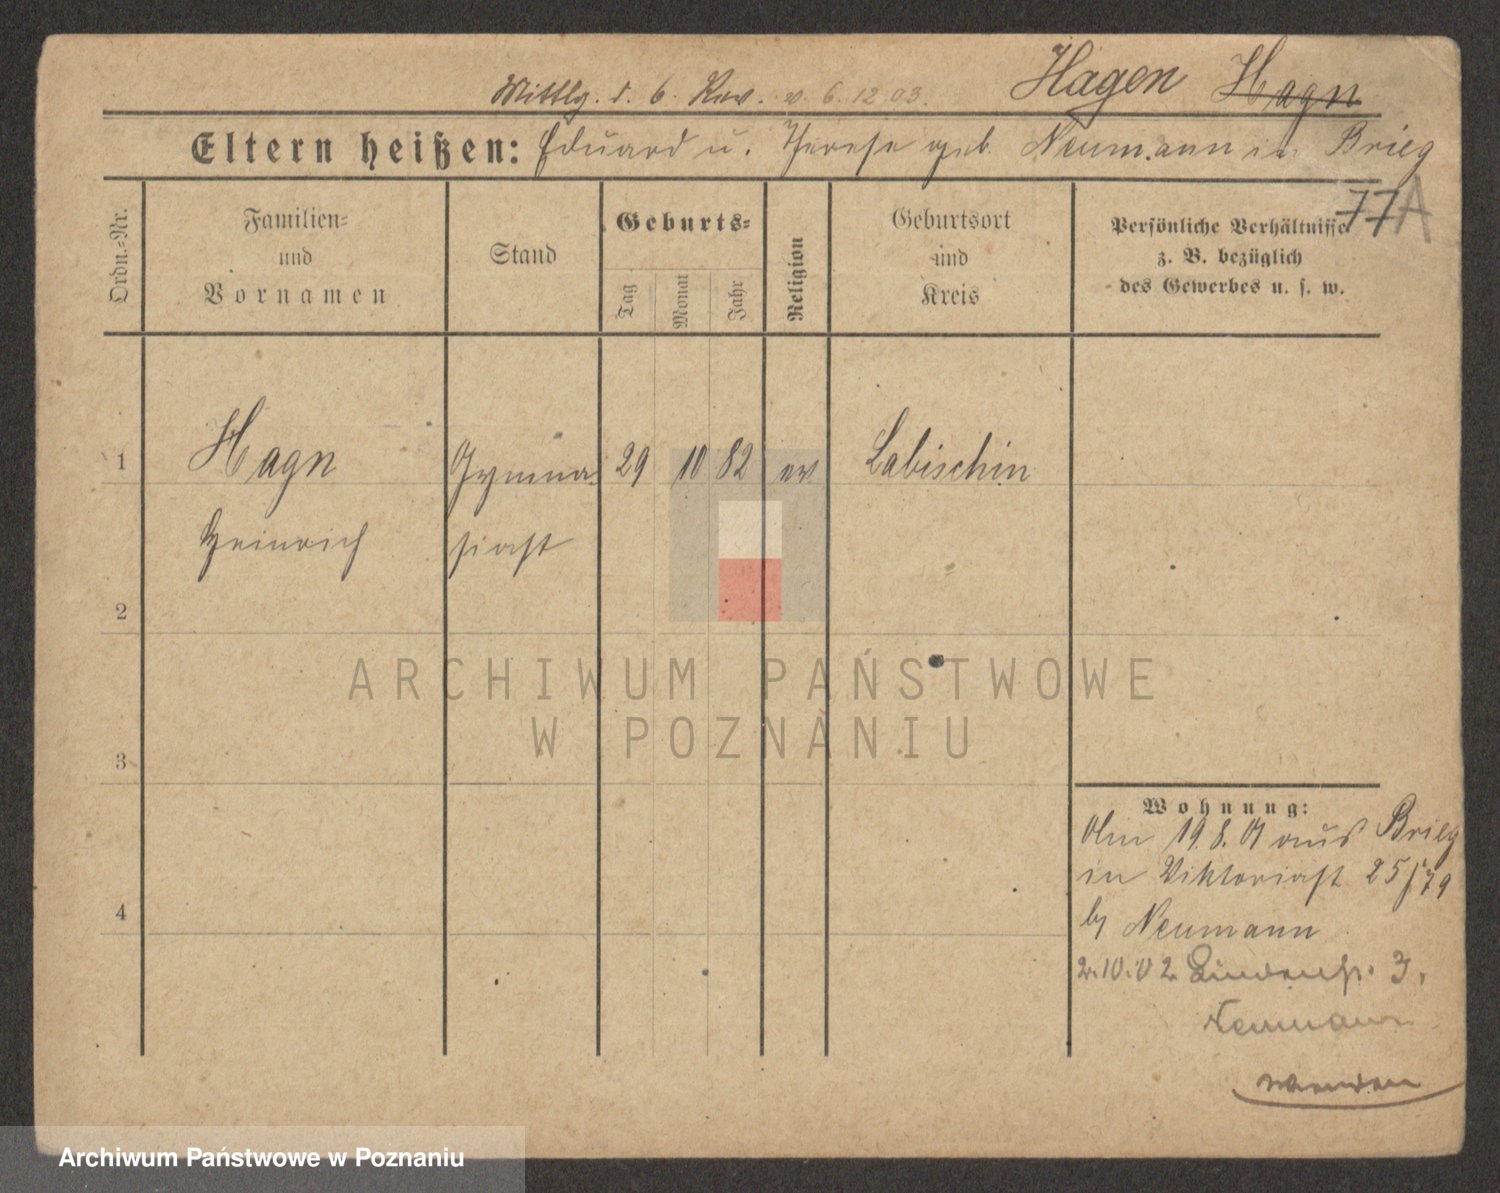 Mittlg. d. 6. Rev. v. 6.12.03. Hagen Hagn
Eltern heißen: Eduard u. Therese geb. Neumann in Brieg
77 A
Ordn.-Nr.
Familien-
und
Vornamen
Stand
Geburts-
Tag
Monat
Jahr
Religion
Geburtsort
und
Kreis
Persönliche Verhältnisse
z. B. bezüglich
des Gewerbes u. s. w.
1 Hagn Gymna- 29 10 82 ev Labischin
Heinrich siast
2
3
4
Wohnung:
Am 19.8.01 aus Brieg
in Viktoriast 25/79
by Neumann
2.10.02 Lindenstr. 3.
Neumann
wenden
ARCHIWUM PAŃSTWOWE
W POZNANIU
Archiwum Państwowe w Poznaniu